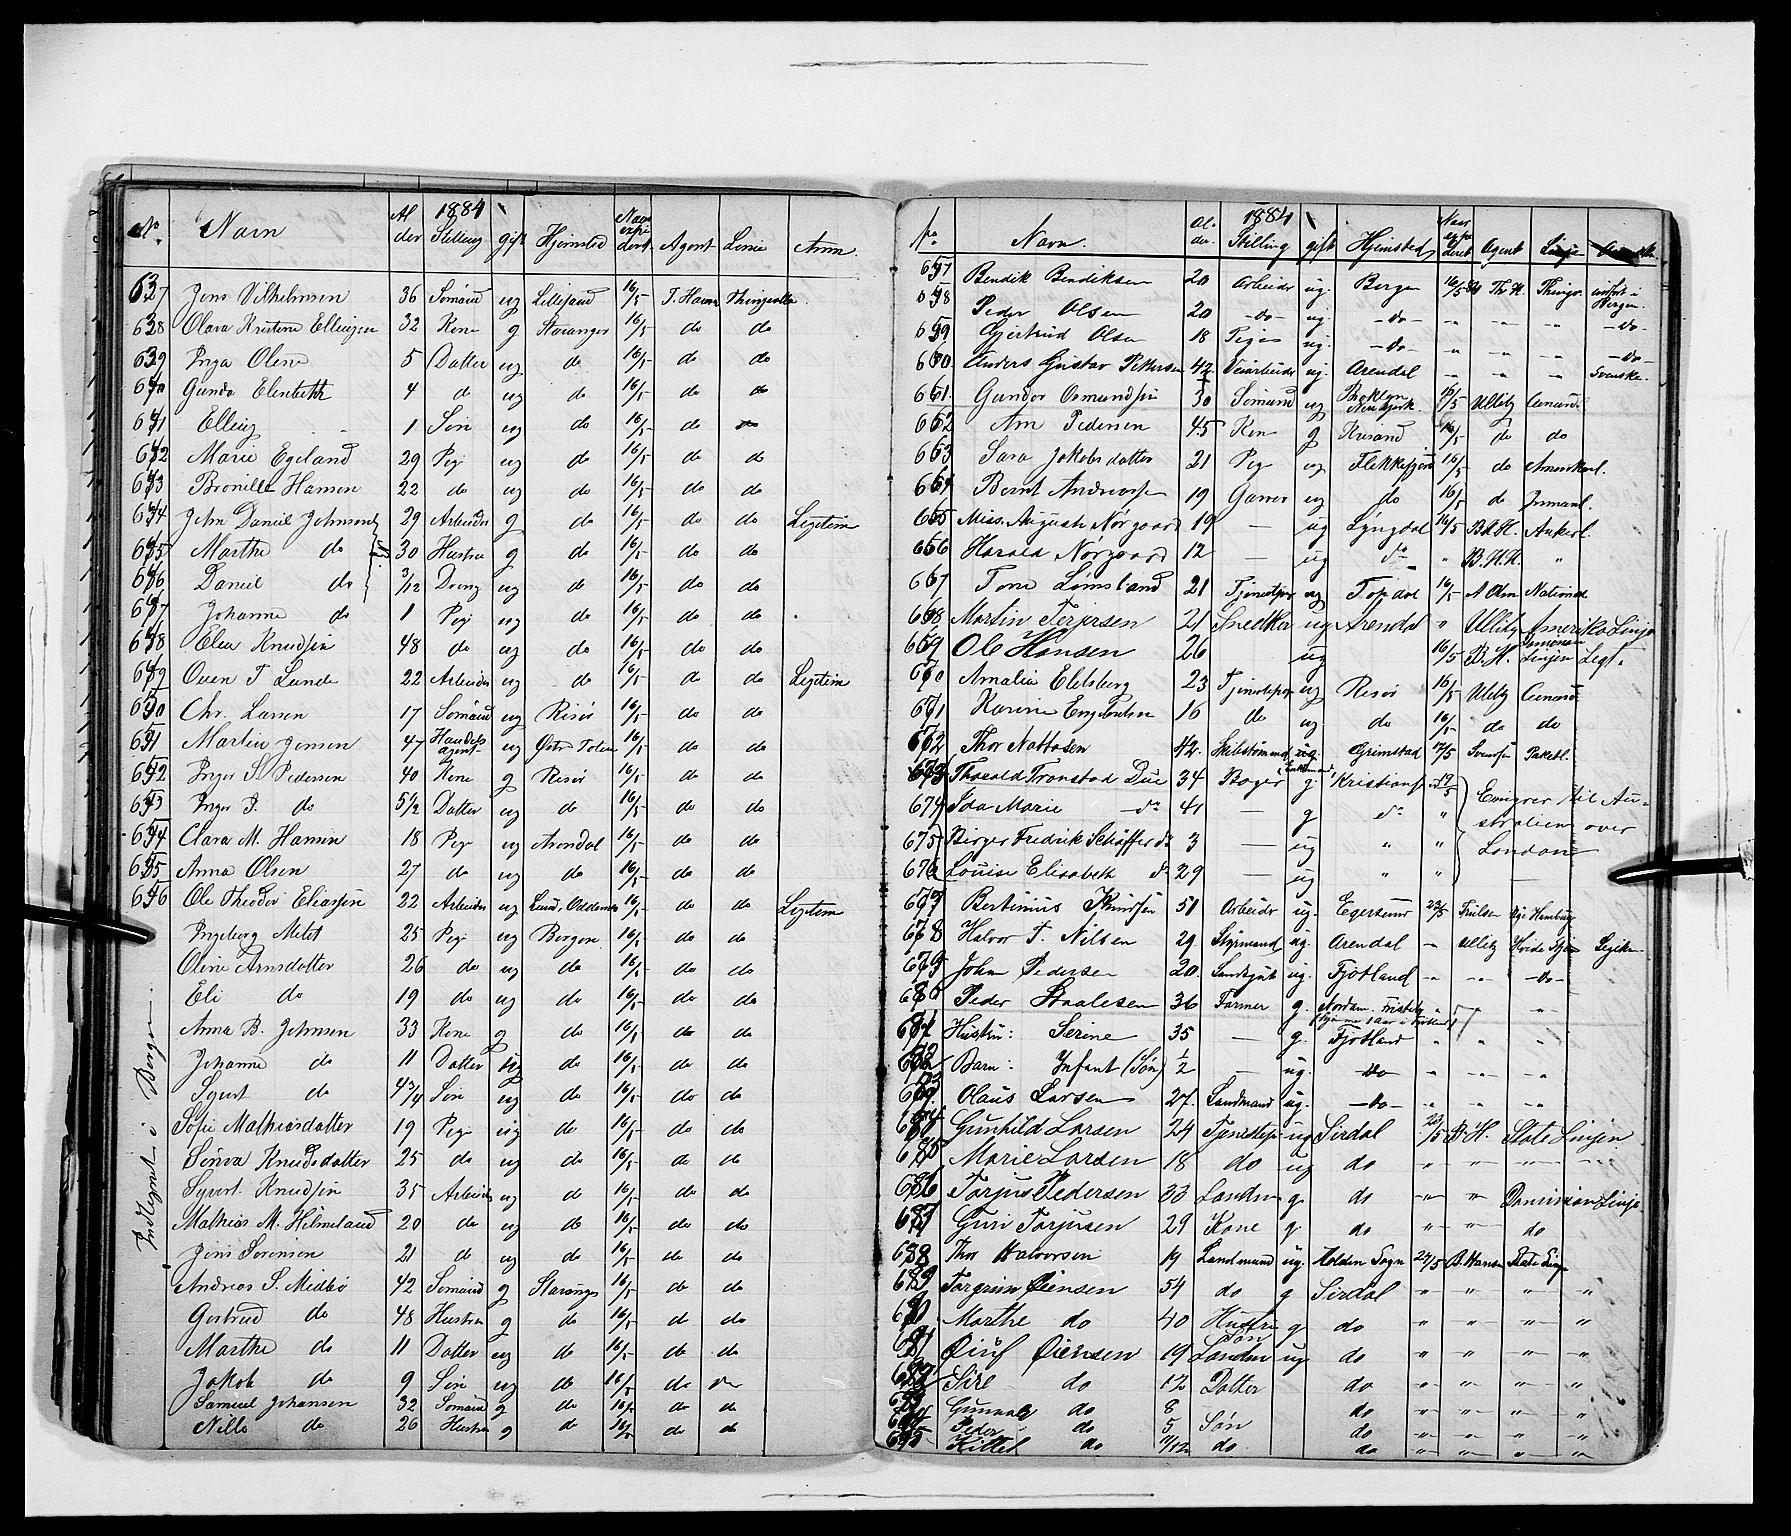 No. Navn Alder 1884 Stilling gift Hjemsted Naar expedert Agent Linie Anm.
637 Jens Vilhelmsen 36 Sömand ug Lillesand 16/5 T. Hanne Thingvalla
638 Olava Kristine Ellingsen 32 Kone g Stavanger 16/5 do do
639 Inga Oline 5 Datter ug do 16/5 do do
640 Gunda Elisabeth 4 do ug do 16/5 do do
641 Elling 1 Sön ug do 16/5 do do
642 Marie Egeland 29 Pige ug do 16/5 do do
643 Bronille Hansen 22 do ug do 16/5 do do
644 John Daniel Johnsen 29 Arbeider g do 16/5 do do Legitim
645 Marthe do 30 Hustru g do 16/5 do do
646 Daniel do 3/12 Dreng ug do 16/5 do do
647 Johanne do 1 Pige ug do 16/5 do do
648 Elen Knudsen 48 do ug do 16/5 do do
649 Oven T Lunde 22 Arbeider ug do 16/5 do do Legitim
650 Chr. Larsen 17 Sömand ug Risör 16/5 do do
651 Martin Jensen 47 Handels agent ug Østre Toten 16/5 do do
652 Inger S. Pedersen 40 Kone g Risör 16/5 do do
653 Inger S. do 5 1/2 Datter ug do 16/5 do do
654 Clara M. Hansen 18 Pige ug Arendal 16/5 do do
655 Anna Olsen 27 do ug do 16/5 do do
656 Ole Theodor Eliassen 22 Arbeider ug Lund, Oddernes 16/5 do do Legitim
Indtegnet i Bergen.
Ingeborg Melot 25 Pige ug Bergen 16/5 do do
Oline Arnsdotter 26 do ug do 16/5 do do
Eli do 19 do ug do 16/5 do do
Anna B. Johnsen 33 Kone g do 16/5 do do
Johanne do 11 Datter ug do 16/5 do do
Sjurt do 4 3/4 Sön ug do 16/5 do do
Sofie Mathiasdatter 19 Pige ug do 16/5 do do
Knudsdatter 25 do ug do 16/5 do do
Syvert Knudsen 35 Arbeider ug do 16/5 do do
Mathias M. Helmeland 20 do ug do 16/5 do do
Jens Sörensen 21 do ug do 16/5 do do
Andreas S. Midbö 42 Sömand g Stavanger 16/5 do do
Gjertrud do 48 Hustru g do 16/5 do do
Marthe do 11 Datter ug do 16/5 do do
Jakob do 9 Sön ug do 16/5 do do
Samuel Johansen 32 Sömand g do 16/5 do do
Nille do 26 Hustru g do 16/5 do do
No. Navn. Alder. 1884 Stilling gift Hjemsted Naar Agent Linje
657 Bendik Bendiksen 20 Arbeider ug. Bergen 16/5 84 Th. H. Thingv. indsk. i Bergen
658 Peder Olsen 20 -do- ug. -do- " " " -do-
659 Gjertrud Olsen 18 Pige ug. -do- " " " -do-
660 Anders Gustav Pettersen 42 Veiarbeider ug. Arendal " " " Svenske.
661 Gunder Osmundsen 30 Sömand ug Brooklyn New York. 16/5 Ulleby Cunard.
662 Am Pedersen 45 Kone g Krsand 16/5 do do
663 Sara Jakobsdatter 21 Pige ug Flekkefjord 16/5 do Amerikal.
664 Bernt Andreassen 19 Garver ug do 16/5 do Inmanl.
665 Miss. Augusta Nörgaard 19 — ug Lyngdal 16/5 B.H.H. Ankerl.
666 Harald Nörgaard 12 — ug do " B.H.H. "
667 Tone Lömsland 21 Tjenestpige ug Topdal 16/5 A Olsen National
668 Martin Terjesen 21 Snedker ug Arendal " Ulleby Amerika Linje
669 Ole Hansen 26 ug 16/5 B.H. Dominion Linjen Legt.
670 Amalia Ellsberg 23 Tjenestepige ug Risör 16/5 Ulleby Cunard
671 Karine Engebretsen 16 do ug do 16/5 do do
672 Thor Nattosen 42. Skibstömmermand ug. Grimstad 17/5 Svensen Paketl.
673 Tharald Tronstad Due 34 Bager g. Kristianss 17/5 Emigrer til Au-
674 Ida Marie do 41 — g do " stralien over
675 Birger Fredrik Schäffer do 3 — ug " " London
676 Louise Elisabeth do 29 — ug " " —
677 Bertinius Knudsen 51 Arbeider ug. Egersund 23/5 Trulsen via Hamburg
678 Halvor T. Nilsen 29 Styrmand ug. Arendal — Ulleby Hvide Stjerne Legiten
679 John Pedersen 20 Landgut ug. Fjotland " " -do-
680 Peder Staalesen 36 Farmer g.
681 Hustru: Serine 35 — g. Fjotland " " "
682 Barn: Infant (Sön) 1/2 — ug. -do- " " -"-
683 Olaus Larsen 27. Landmand ug. -do- " " -"-
684 Gunhild Larsen 24 Tjenestepi ug Sirdal 23/5 B.H. State Linjen
685 Marie Larsen 18 do ug do " " " "
686 Tarjus Pedersen 33 Landm g do " " Dominion Linje
687 Guri Tarjusen 29 Kone g do " " do
688 Thor Halvorsen 19 Landmand ug. Holden Sogn 24/5 B. Hansen State Linje
689 Torgrim Øiensen 54 do g Sirdal " " " "
690 Marthe do 40 Hustru g do " " " "
691 Øiuf Øiensen 19 Sön Landm ug do " " " "
692 Sire do 12 Datter do " " " "
693 Gunvald do 8 do " " " "
694 Peder do 5 Sön do " " " "
695 Kittel do 11/12 do do " " " "